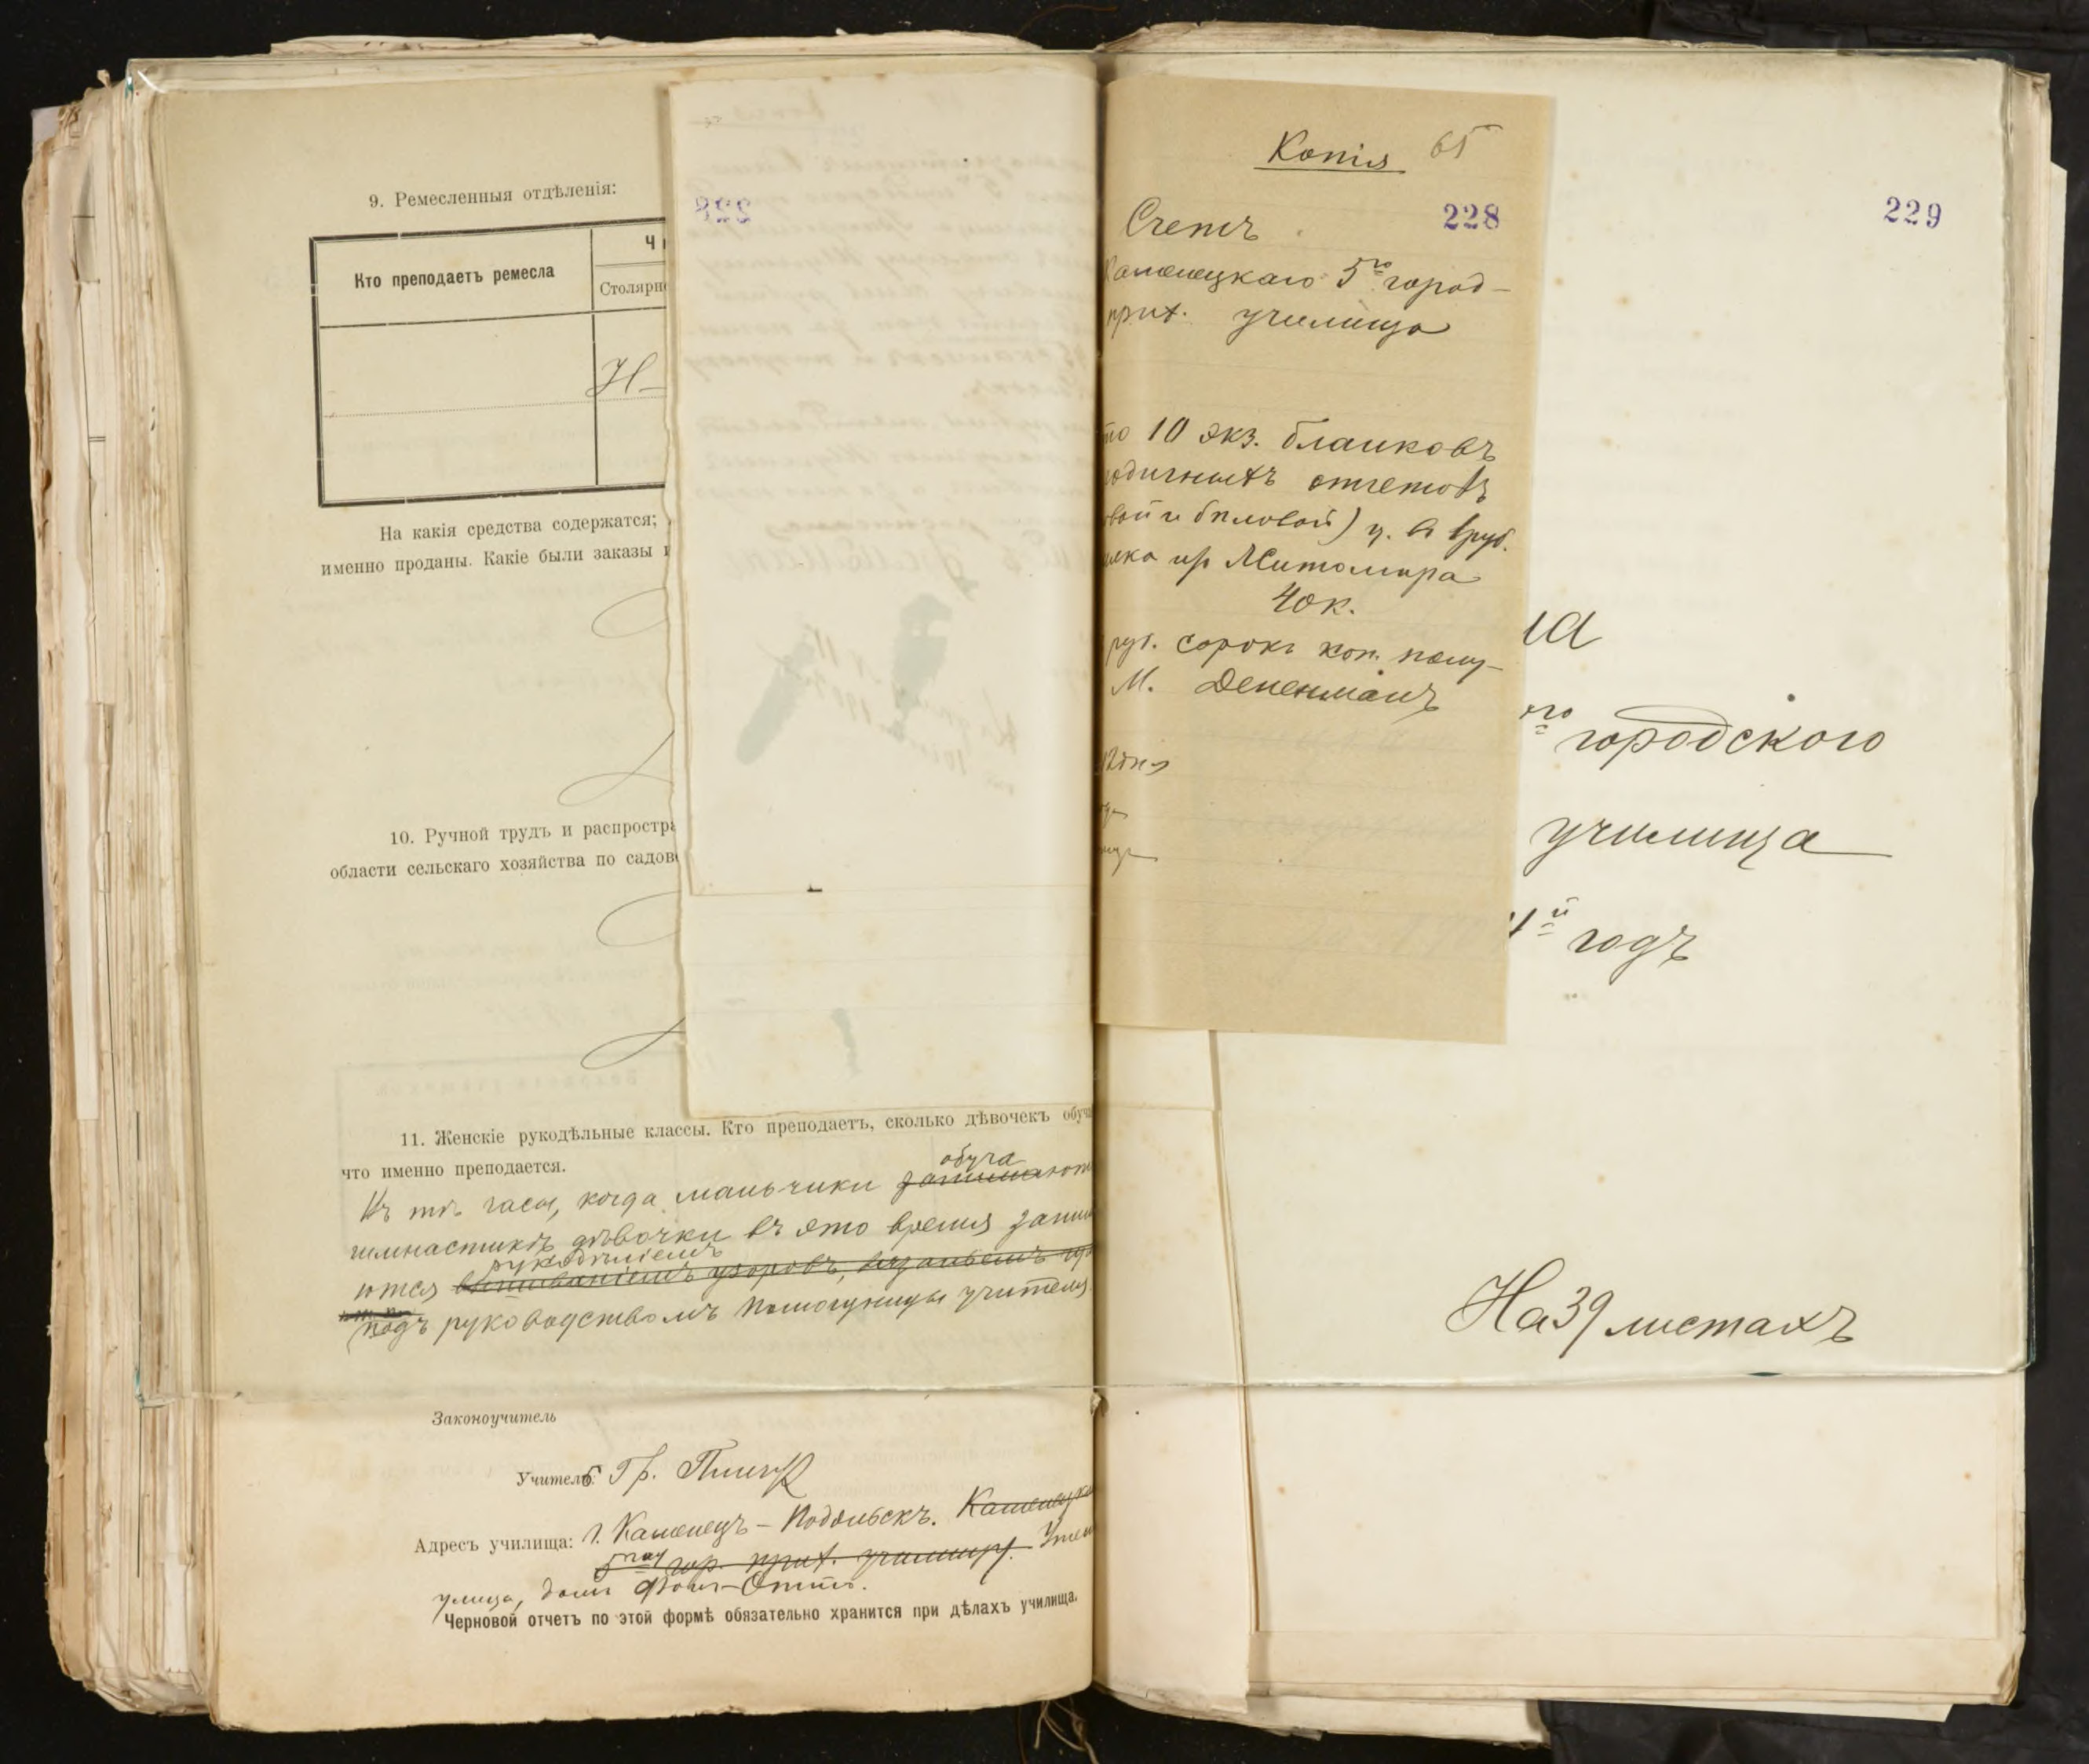 9. Ремесленныя отдѣленія:
Кто преподаетъ ремесла
Ч
Столярн
Н
На какія средства содержатся;
именно проданы. Какіе были заказы
10. Ручной трудъ и распростра
области сельскаго хозяйства по садов
11. Женскіе рукодѣльные классы. Кто преподаетъ, сколько дѣвочекъ обуч
что именно преподается.
обуча
Въ тѣ часы, когда мальчики занимаются
гимнастикѣ дѣвочки въ это время заним
рукодѣліемъ
ются вышиваніемъ узоровъ, вязаньемъ
подъ руководствомъ помощницы учителя.
Законоучитель
Учитель: Гр.
Адресъ училища: г. Каменецъ-Подольскъ. Каменецка
5му гор. прих. училищу.
улица, домъ Фонъ-Отто.
Черновой отчетъ по этой формѣ обязательно хранится при дѣлахъ училища.
228
Копія 65
228
Счетъ
Каменецкаго 5го город-
прих. училища
то 10 экз. бланковъ
одичныхъ отчетовъ
овой и бѣловой) ц. 1 руб.
Житомира
40 к.
руб. сорокъ коп. полу-
М. Дененманъ
229
на
го городского
училища
й годъ
На 39 листахъ